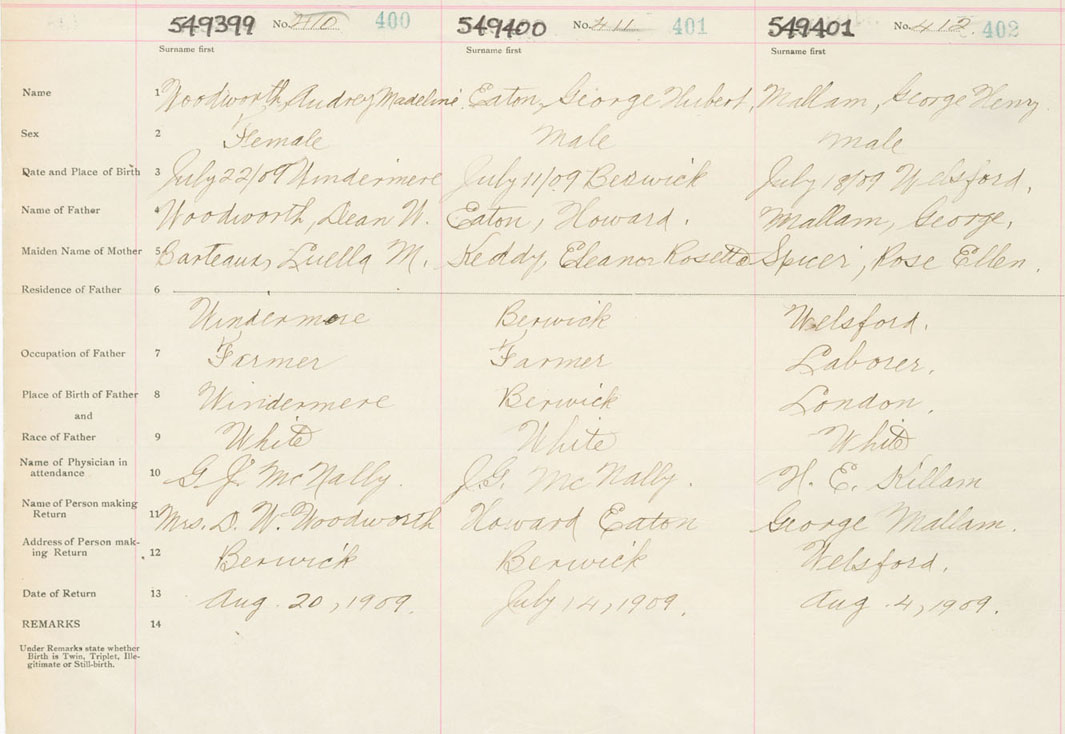 549399 No. 410 400 549400 No. 411 401 549401 No. 412. 402
Surname first Surname first Surname first
Name 1 Woodworth, Audrey Madeline. Eaton, George Hubert, Mallam, George Henry.
Sex 2 Female Male Male
Date and Place of Birth 3 July 22/09 Windermere July 11/09 Berwick July 18/09 Welsford.
Name of Father 4 Woodworth, Dean W. Eaton, Howard. Mallam, George.
Maiden Name of Mother 5 Barteaux, Luella M. Keddy, Eleanor Rosetta Spicer, Rose Ellen.
Residence of Father 6
Windermere Berwick Welsford.
Occupation of Father 7 Farmer Farmer Laborer.
Place of Birth of Father 8 Windermere Berwick London.
and
Race of Father 9 White White White
Name of Physician in
attendance 10 G. J. McNally. J. G. McNally. H. E. Killam
Name of Person making
Return 11 Mrs. D. W. Woodworth Howard Eaton George Mallam.
Address of Person mak-
ing Return 12 Berwick Berwick Welsford.
Date of Return 13 Aug. 20, 1909. July 14, 1909. Aug. 4, 1909.
REMARKS 14
Under Remarks state whether
Birth is Twin, Triplet, Ille-
gitimate or Still-birth.